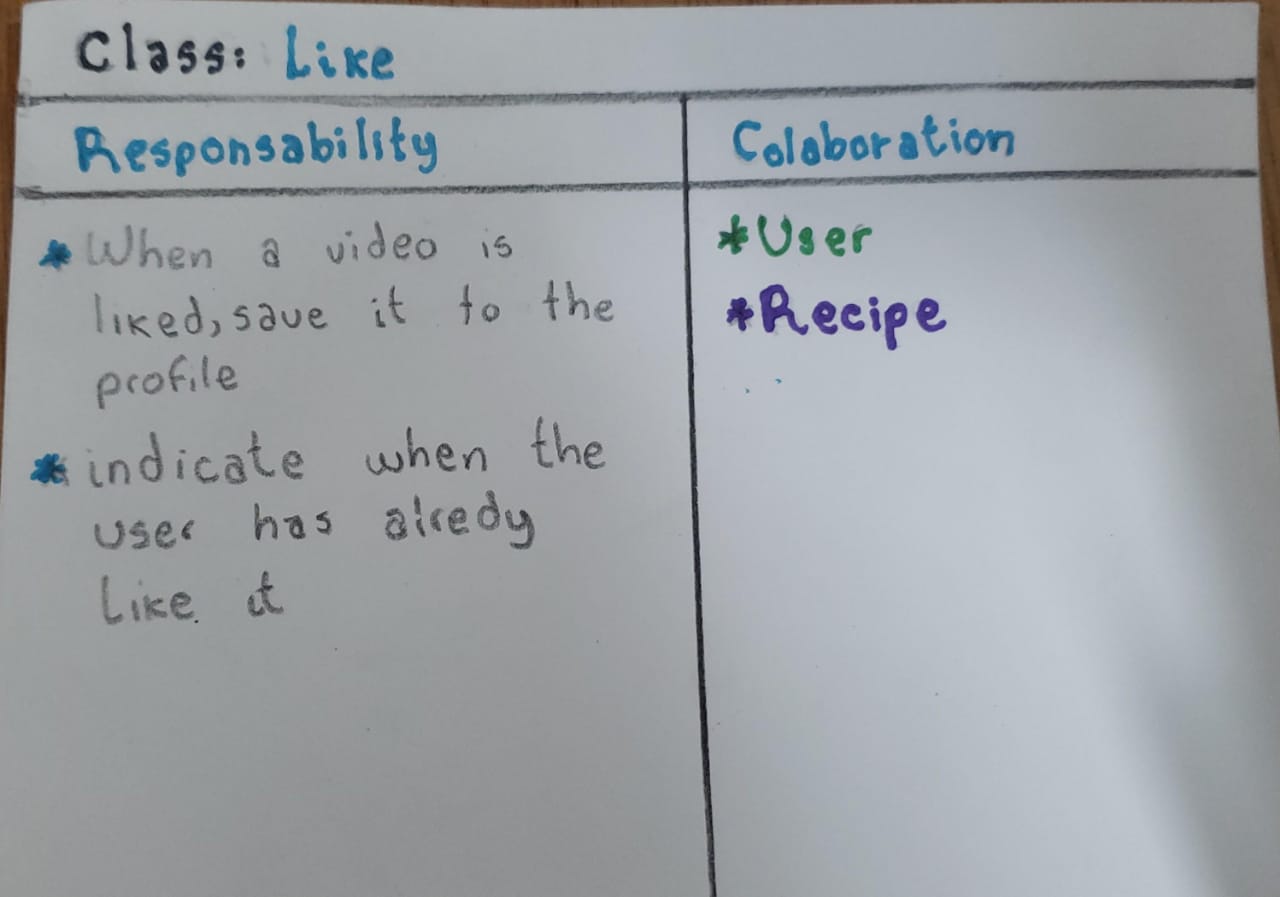 Class: Like
Responsability
Colaboration
* When a video is
liked, save it to the
profile
* indicate when the
user has alredy
Like it
* User
* Recipe